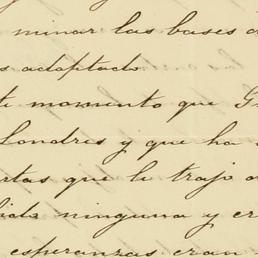 minar las bases d
s adoptado.
te momento que G
Londres y que ha
rtas que le trajo
bida ninguna y er
esperanzas eran